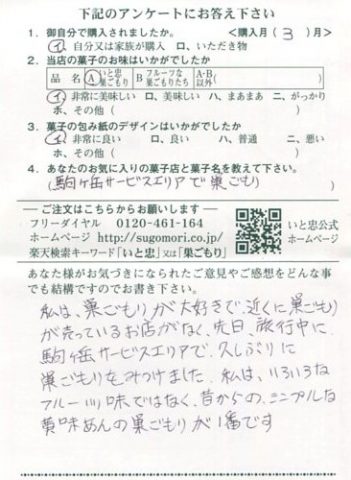 下記のアンケートにお答え下さい
1. 御自分で購入されましたか。 <購入月( 3 )月>
イ、自分又は家族が購入 ロ、いただき物
2. 当店の菓子のお味はいかがでしたか
品 名 A いと忠巣ごもり B フルーツな巣ごもりたち A・B以外( )
イ、非常に美味しい ロ、美味しい ハ、まあまあ ニ、がっかり
ホ、その他( )
3. 菓子の包み紙のデザインはいかがでしたか
イ、非常に良い ロ、良い ハ、普通 ニ、悪い
ホ、その他( )
4. あなたのお気に入りの菓子店と菓子名を教えて下さい。
(駒ヶ岳サービスエリアで巣ごもり )
ご注文はこちらからお願いします
フリーダイヤル 0120-461-164
ホームページ http://sugomori.co.jp/
楽天検索キーワード「いと忠」又は「巣ごもり」
いと忠公式
ホームページ
あなた様がお気づきになられたご意見やご感想をどんな事
でも結構ですのでお書き下さい。
私は、巣ごもりが大好きで、近くに巣ごもり
が売っているお店がなく、先日、旅行中に、
駒ヶ岳サービスエリアで、久しぶりに
巣ごもりをみつけました。私は、いろいろな
フルーツ味ではなく、昔からの、シンプルな
黄味あんの巣ごもりが1番です